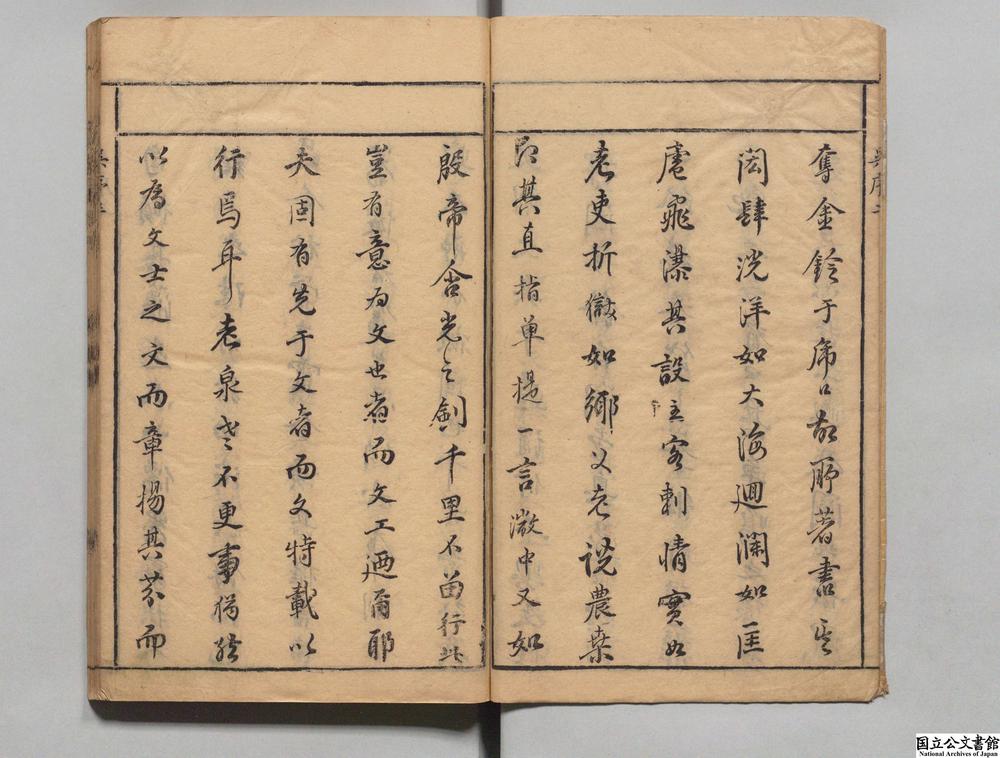 奪金鈴于席口故所著書其
閎肆洸洋如大海迴瀾如匡
廬飛瀑其設主客刺情實如
老吏折獄如鄉父老說農桑
即其直指单提一言微中又如
殷帝含光之劍千里不留行此
豈有意为文也者而文工迺爾耶
夫固有先于文者而文特載以
行焉耳老泉老不更事猶能
以為文士之文而章揚其芬而
国立公文書館
National Archives of Japan